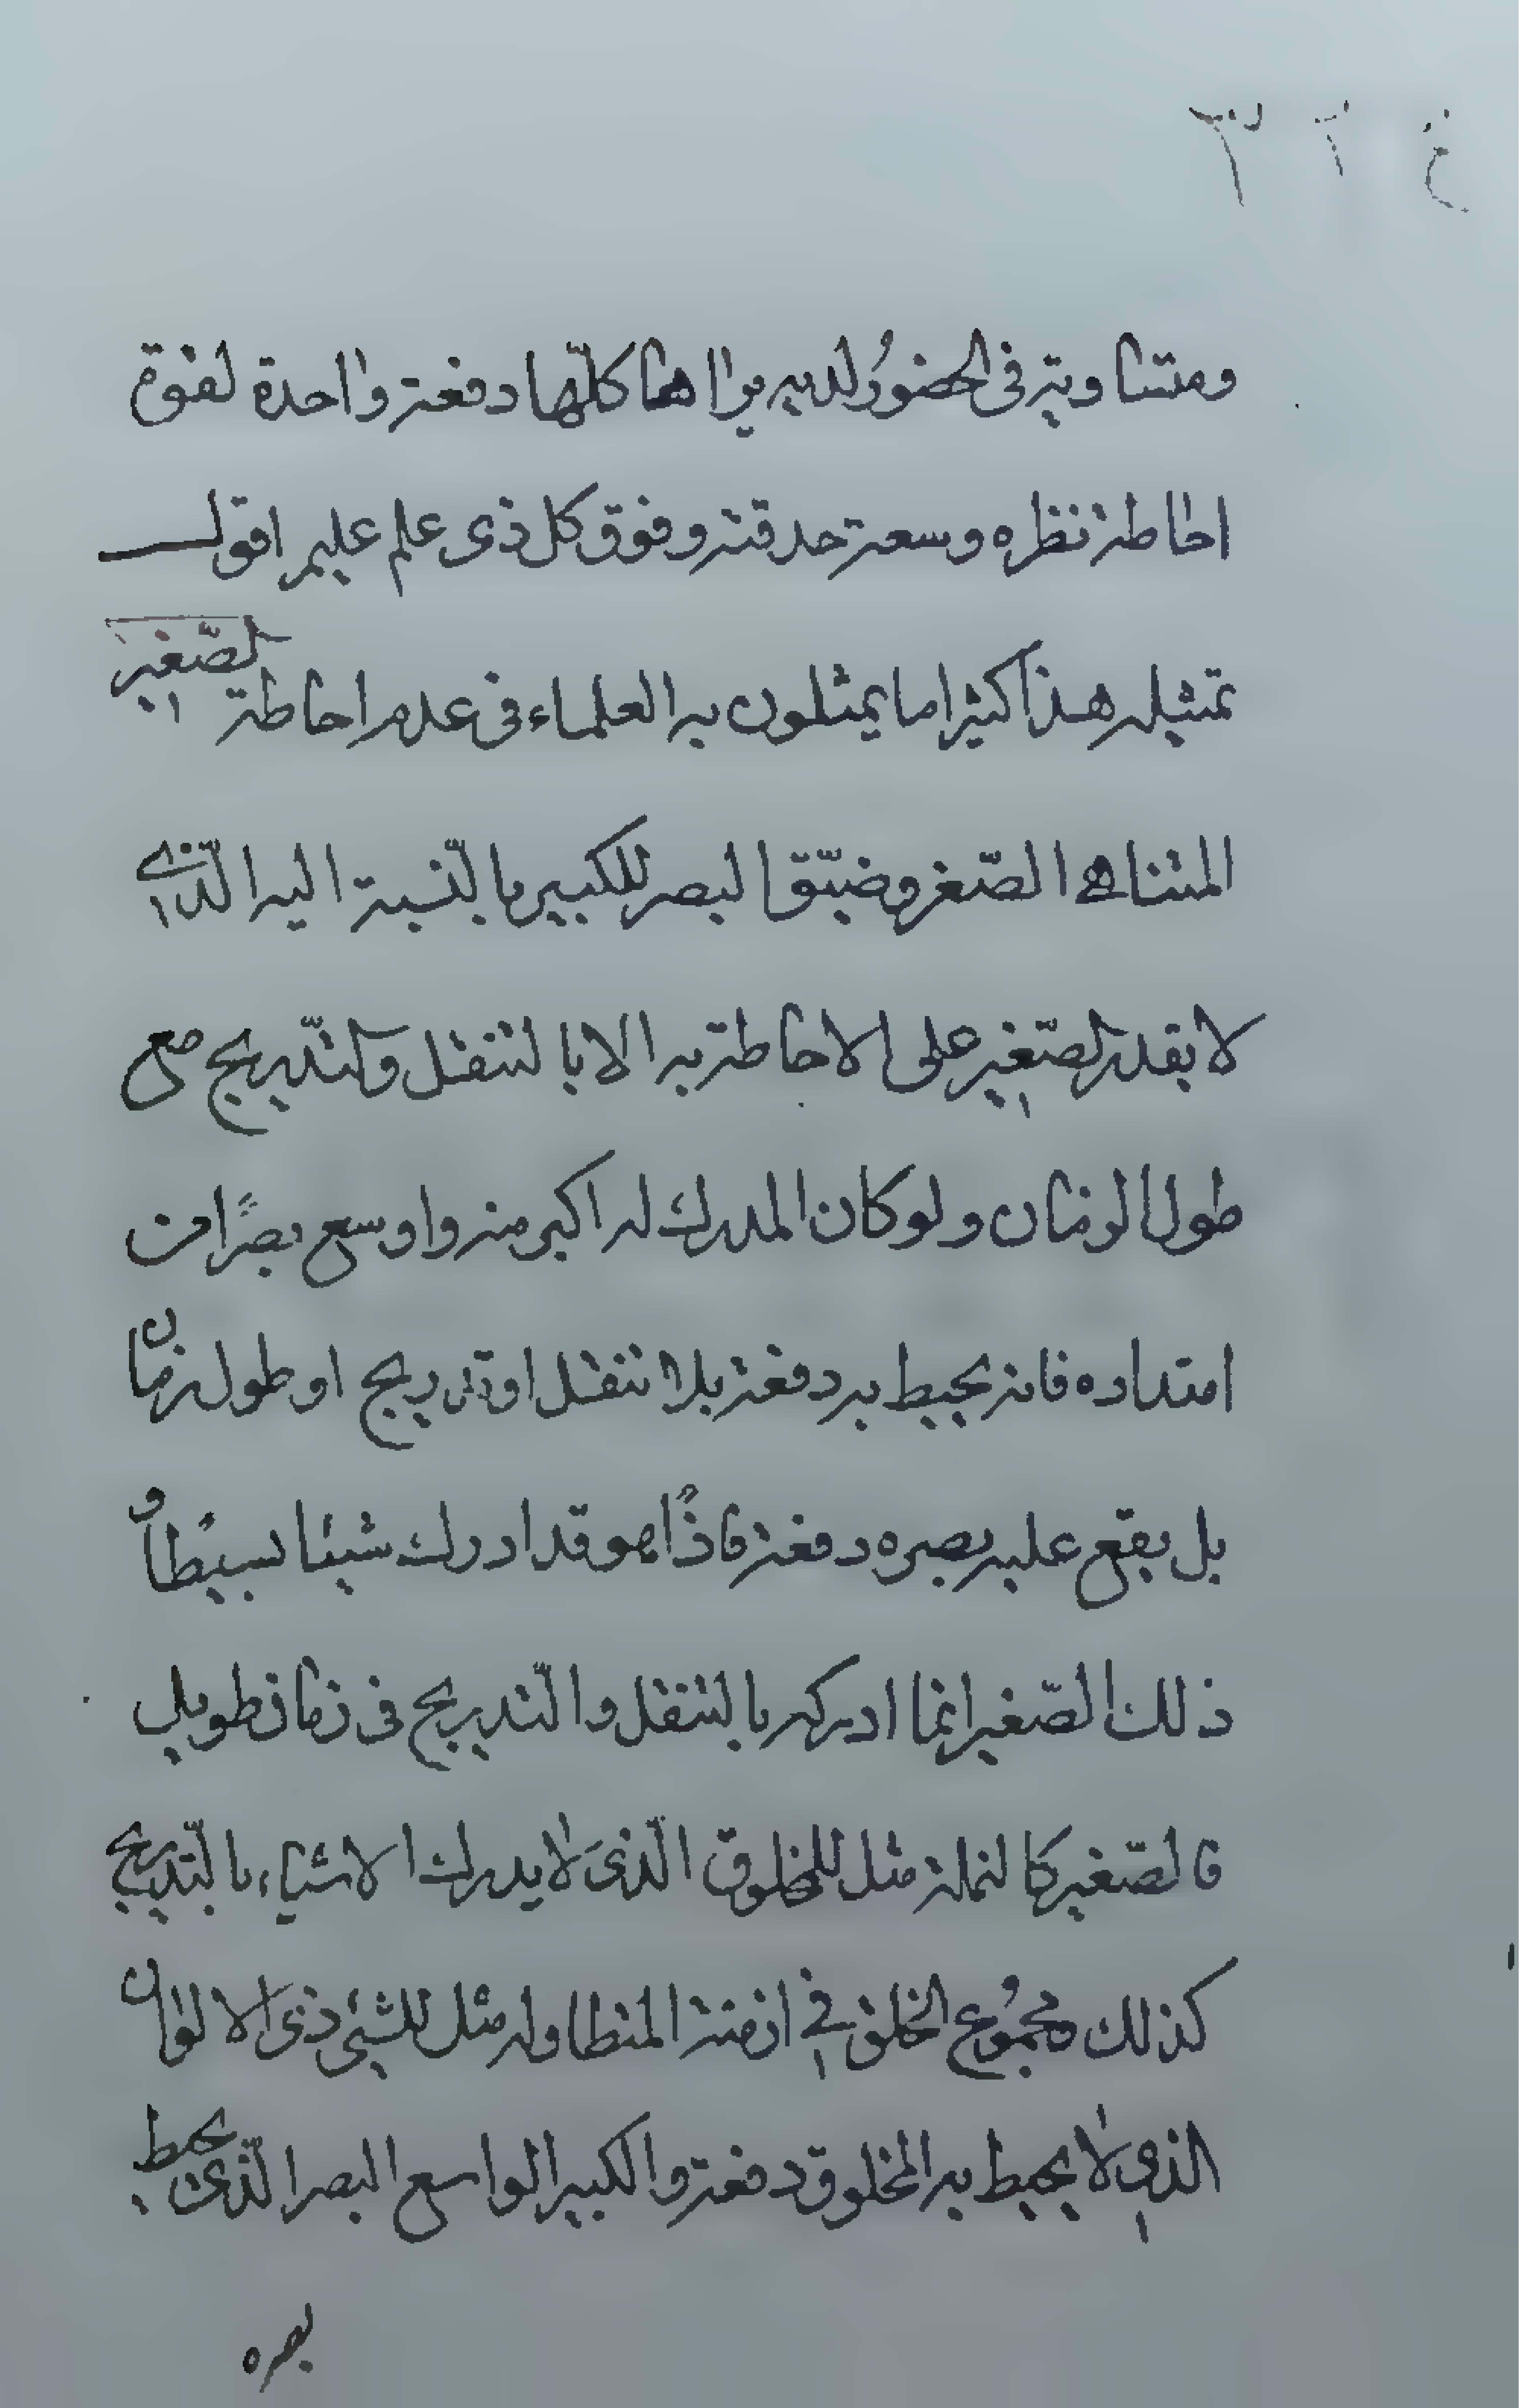 ومتساوية في الحضُور لديه يراها كلّها دفعة واحدة لقوة
احاطة نظره وسعة حدقته وفوق كل ذى علم عليم اقول
تمثيله هذا كثيرا ما يمثلون به العلماء فى عدم احاطة الصّغير
المتناهى الصّغر وضيّق البصر للكبير بالنّسبة اليه الّذى
لا يقدر الصّغير على الاحاطة به الا بالتنقل والتّدريج مع
طول الزمان ولو كان المدرك له اكبر منه واوسع بصرًا من
امتداده فانه يحيط به دفعة بلا تنقل او تدريج او طول زمان
بل يقع عليه بصره دفعة فاذًا هو قد ادرك شيئا بسيطا و
ذلك الصّغير انما ادركه بالتنقل والتّدريج فى زمان طويل
فالصّغير كالنملة مثل للمخلوق الّذى لا يدرك الاشياء بالتّدريج
كذلك مجمُوع الخلق في ازمنة المتطاوله مثل للشيئ ذى الالوان
الذي لا يحيط به المخلوق دفعة والكبير الواسع البصر الّذى يحيط
بصره